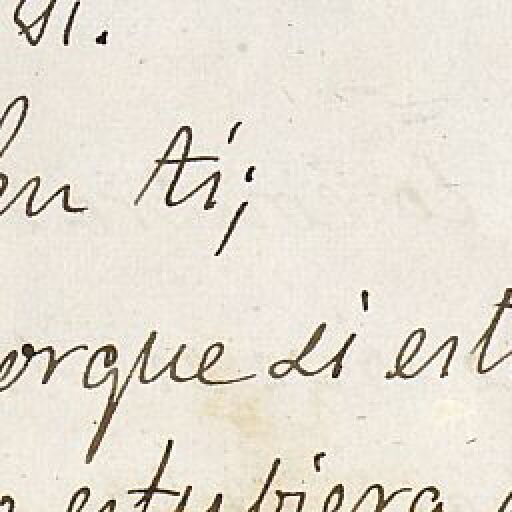 si.
en tí;
orque si est
estubiera